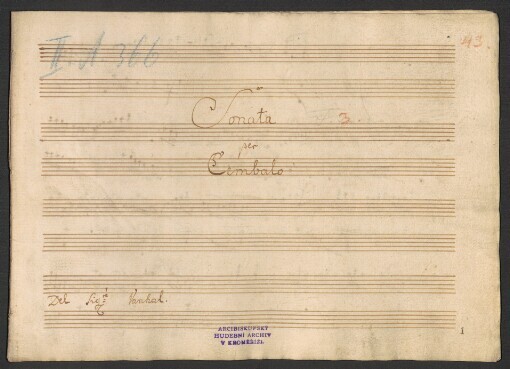 II A 366
43.
Sonata 3.
per
Cembalo
Del Sig:re Vanhal.
ARCIBISKUPSKÝ
HUDEBNÍ ARCHIV
V KROMĚŘÍŽI.
1